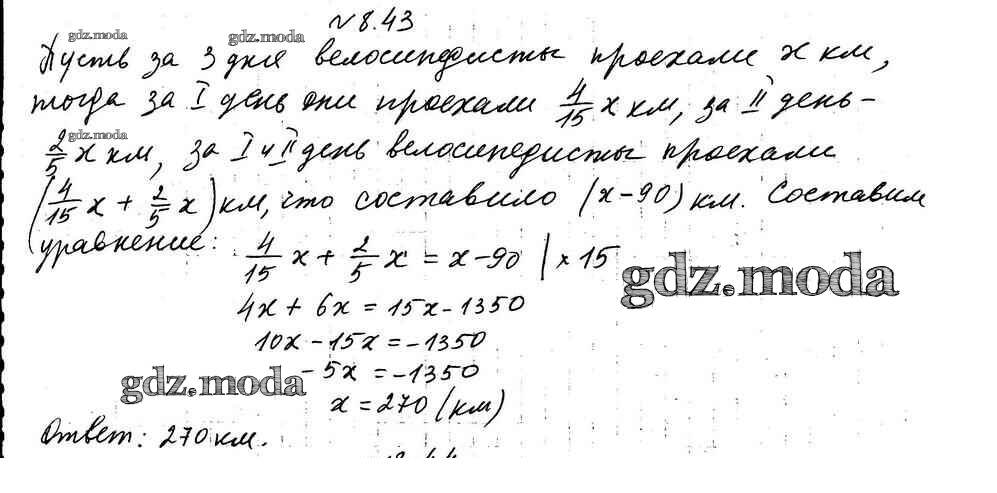 №8.43
gdz.moda gdz.moda
Пусть за 3 дня велосипедисты проехали x км,
тогда за I день они проехали 4/15 x км, за II день -
gdz.moda
2/5 x км, за I и II день велосипедисты проехали
(4/15 x + 2/5 x) км, что составило (x-90) км. Составим
уравнение:
4/15 x + 2/5 x = x-90 | × 15
gdz.moda
4x + 6x = 15x-1350
10x-15x=-1350
-5x =-1350
gdz.moda
x =270 (км)
Ответ: 270 км.